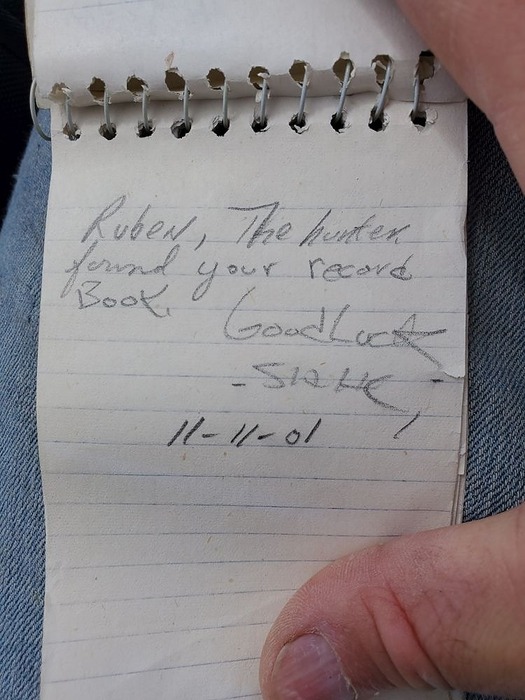 Ruben, The hunter
found your record
Book.
Good Luck
11-11-01